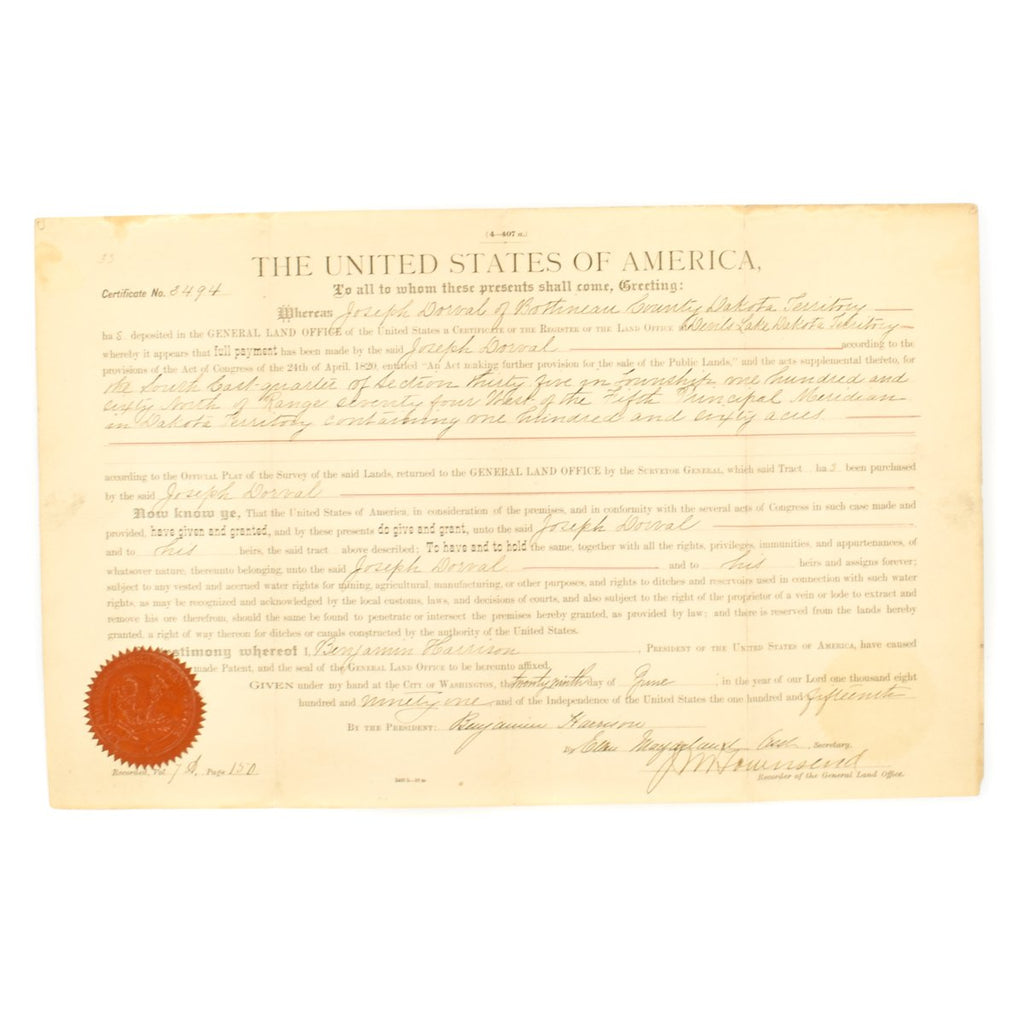 (4—407 a.)
33
THE UNITED STATES OF AMERICA,
Certificate No. 3494
To all to whom these presents shall come, Greeting:
Whereas Joseph Dorval of Bottineau County Dakota Territory
ha s deposited in the GENERAL LAND OFFICE of the United States a CERTIFICATE OF THE REGISTER OF THE LAND OFFICE at Devils Lake Dakota Territory
whereby it appears that full payment has been made by the said Joseph Dorval according to the
provisions of the Act of Congress of the 24th of April, 1820, entitled "An Act making further provision for the sale of the Public Lands," and the acts supplemental thereto, for
the South East quarter of Section thirty five in Township one hundred and
sixty North of Range seventy four West of the Fifth Principal Meridian
in Dakota Territory containing one hundred and sixty acres
according to the OFFICIAL PLAT of the Survey of the said Lands, returned to the GENERAL LAND OFFICE by the SURVEYOR GENERAL, which said Tract ha s been purchased
by the said Joseph Dorval
Now know ye, That the United States of America, in consideration of the premises, and in conformity with the several acts of Congress in such case made and
provided, have given and granted, and by these presents do give and grant, unto the said Joseph Dorval
and to his heirs, the said tract above described; To have and to hold the same, together with all the rights, privileges, immunities, and appurtenances, of
whatsoever nature, thereunto belonging, unto the said Joseph Dorval and to his heirs and assigns forever;
subject to any vested and accrued water rights for mining, agricultural, manufacturing, or other purposes, and rights to ditches and reservoirs used in connection with such water
rights, as may be recognized and acknowledged by the local customs, laws, and decisions of courts, and also subject to the right of the proprietor of a vein or lode to extract and
remove his ore therefrom, should the same be found to penetrate or intersect the premises hereby granted, as provided by law; and there is reserved from the lands hereby
granted, a right of way thereon for ditches or canals constructed by the authority of the United States.
testimony whereof I, Benjamin Harrison, PRESIDENT OF THE UNITED STATES OF AMERICA, have caused
made Patent, and the seal of the GENERAL LAND OFFICE to be hereunto affixed.
GIVEN under my hand at the CITY OF WASHINGTON, the twenty ninth day of June, in the year of our Lord one thousand eight
hundred and ninety one, and of the Independence of the United States the one hundred and fifteenth
BY THE PRESIDENT: Benjamin Harrison
By Ellen Macfarland Asst. Secretary.
J. M. Townsend
Recorded, Vol. 7 D, Page 150
Recorder of the General Land Office.